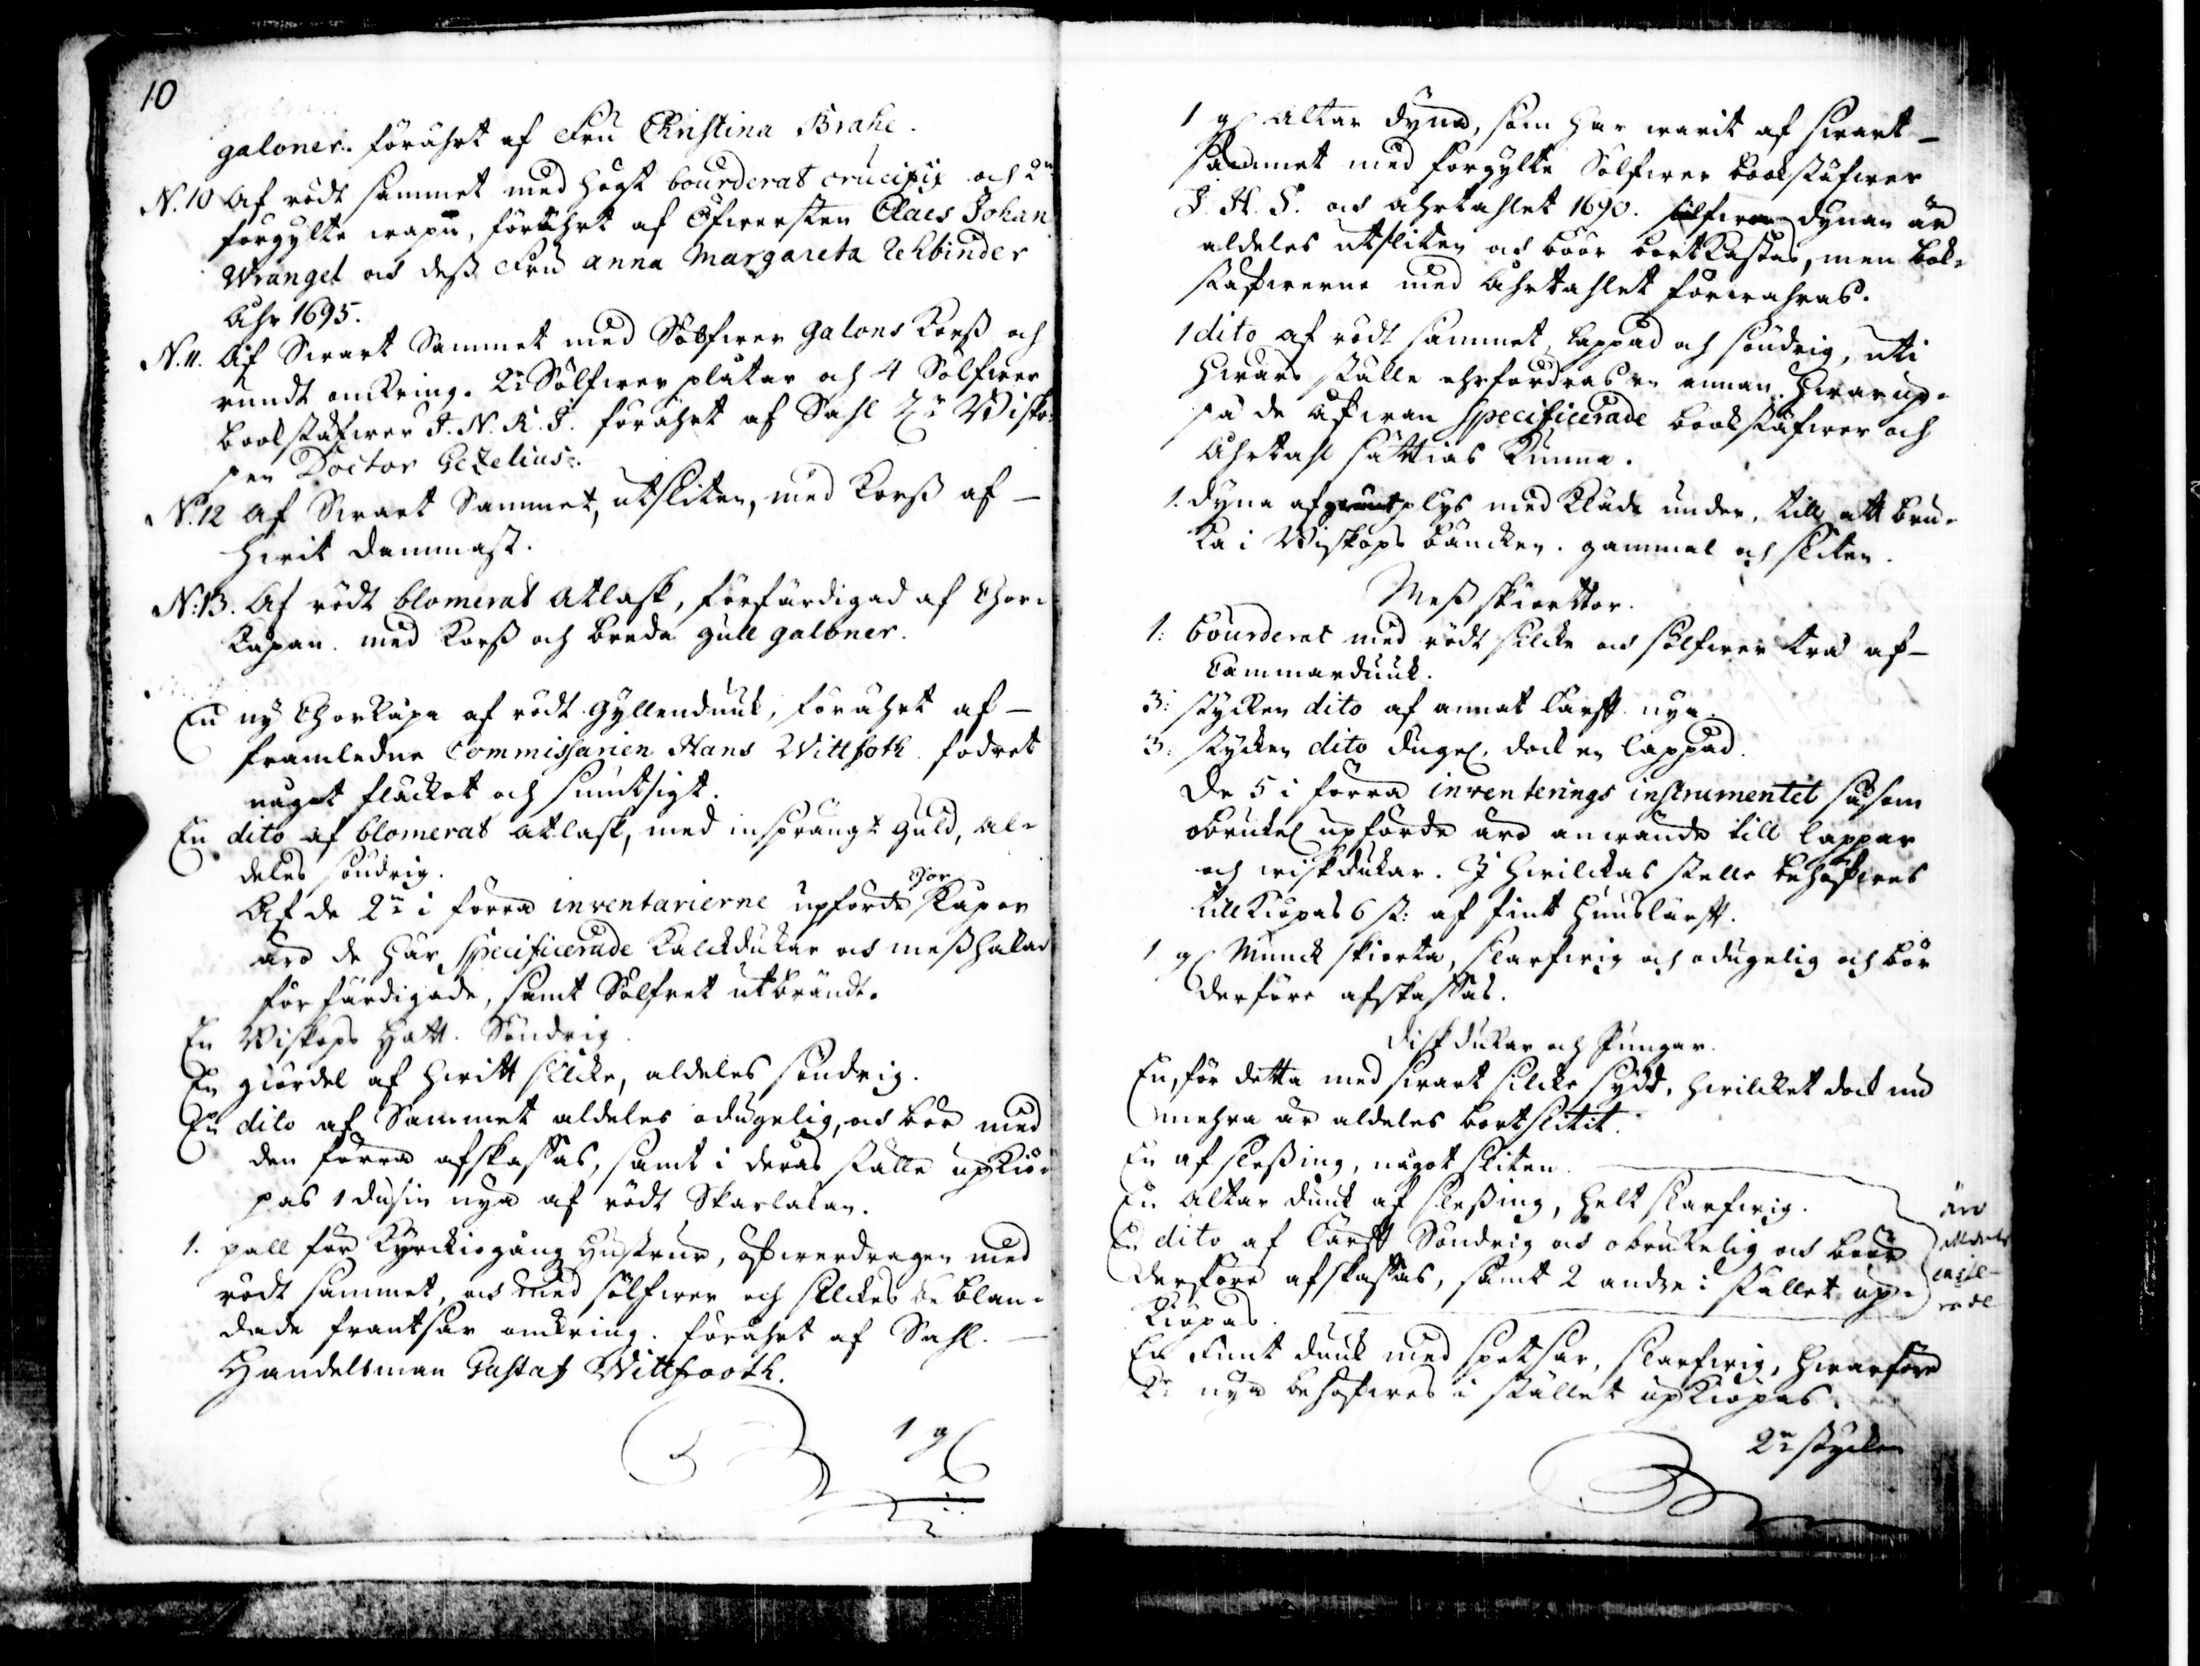 10
galoner. förährt af Fru Christina Brahe.
N. 10 Af rödt sammet med högt bourderat crucifix och 2ne
förgylte wapn, förährt af Öfwersten Claes Johan
Wrangel och dess Fru Anna Margareta Rehbinder
Åhr 1695.
N. 11. Af Swart Sammet med Sölfwer galons Korss och
rundt omkring. 2ne Sölfwer plåtar och 4 Sölfwer
bookstäfwer J. N. R. J. förährt af Sahl. H:r Bisko-
pen Doctor Gezelius.
N. 12 Af Swart Sammet, utsliten, med Korss af
hwit dammast.
N: 13. Af rödt blomerat Atlask, förfärdigad af Chor-
kåpan. med Korss och breda gull galoner.
En ny Chorkåpa af rödt gyllenduuk, förährt af
framledne Commissarien Hans Wittfoth. fodret
något fläckot och smutsigt.
En dito af blomerat Atlask, med insprängt guld, al-
deles söndrig.
Af de 2ne i förra inventarierne upförde Chor kåpor
äro de här specificerade Kalckdukar och messhakar
förfärdigade, samt Sölfret utbrändt.
En Biskops Hatt. Söndrig.
En giördel af hwitt silcke, aldeles söndrig.
En dito af Sammet aldeles odugelig, och bör med
den förra afskaffas, samt i deras ställe upkiö-
pas 1 dusin nya af rödt Skarlakan.
1. pall för Kyrckiogång Hustrur, öfwerdragen med
rödt sammet, och med sölfwer och silckes be blan-
dade frantsar omkring. förährt af Sahl.
Handelsman Gustaf Wittfooth.
1 gl
1 gl Altar dyna, som har warit af swart
sammet med förgylte Sölfwer bookstäfwer
J. H. S. och åhrtahlet 1690. dynan är
aldeles utsliten och böör bortkastas, men bok-
stäfwerne med Åhrtahlet förwahras.
1 dito af rödt sammet, lappad och söndrig, uti
hwars ställe ehrfordras en annan. hwarup-
på de åfwan specificerade bookstäfwer och
Åhrtahl sättias kunna.
1. dyna af plys med kläde under, till att bru-
ka i Biskops bäncken. gammal och sliten.
Mess skiorttor.
1: bourderat med rödt silcke och sölfwer trå af
Cammarduuk.
3: stycken dito af annat lärft nya.
3: stycken dito dugel. dock en lappad.
De 5 i förra inventerings instrumentet såsom
obrukel upförde äro anwände till lappar
och wiskdukar. I hwilckas ställe behöfwes
tillkiöpas 6 st: af fint Huuslärft.
1 gl Munck skiorta, slarfwig och odugelig och bör
derföre afskaffas.
Diskdukar och Pungar.
En, för detta med swart silcke sydt, hwilcket dock nu
mehra är aldeles bortslitit.
En af slessing, något sliten.
En Altar duuk af slessing, helt slarfwig.
En dito af lärft Söndrig och obrukelig och böör
derföre afskaffas, samt 2 andre i stället up-
kiöpas.
äro
alldeles
En Funt duuk med spetsar, slarfwig, hwarföre
2ne nya behöfwes i stället upkiöpas.
2ne stycken